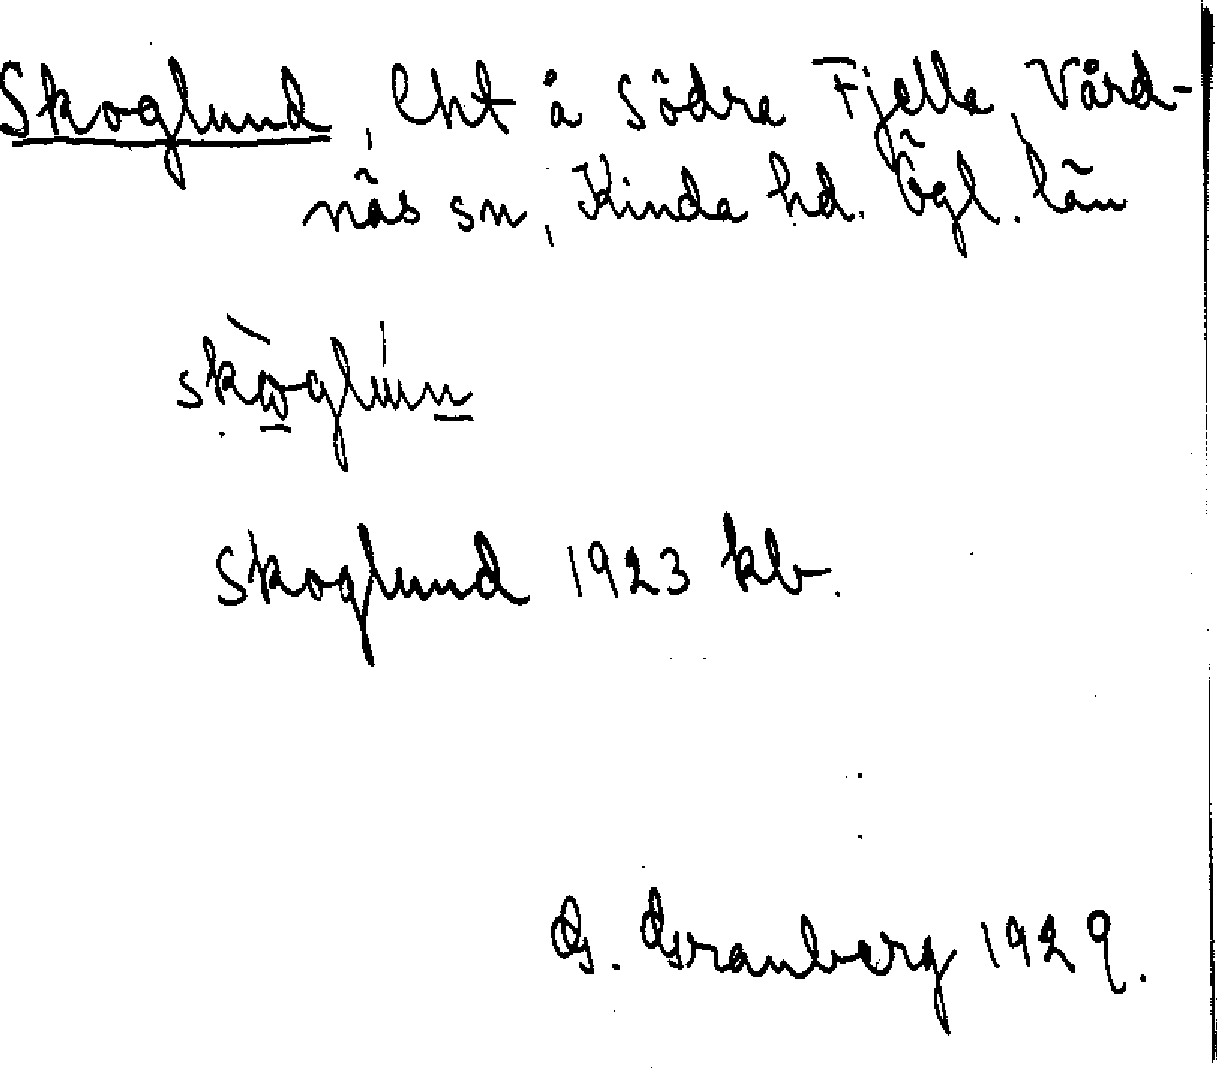 Skoglund, lht å Södra Fjelle, Vård-
näs sn, Kinda hd. Ögl. län
skòglún
Skoglund 1923 kb.
G. Granberg 1929.